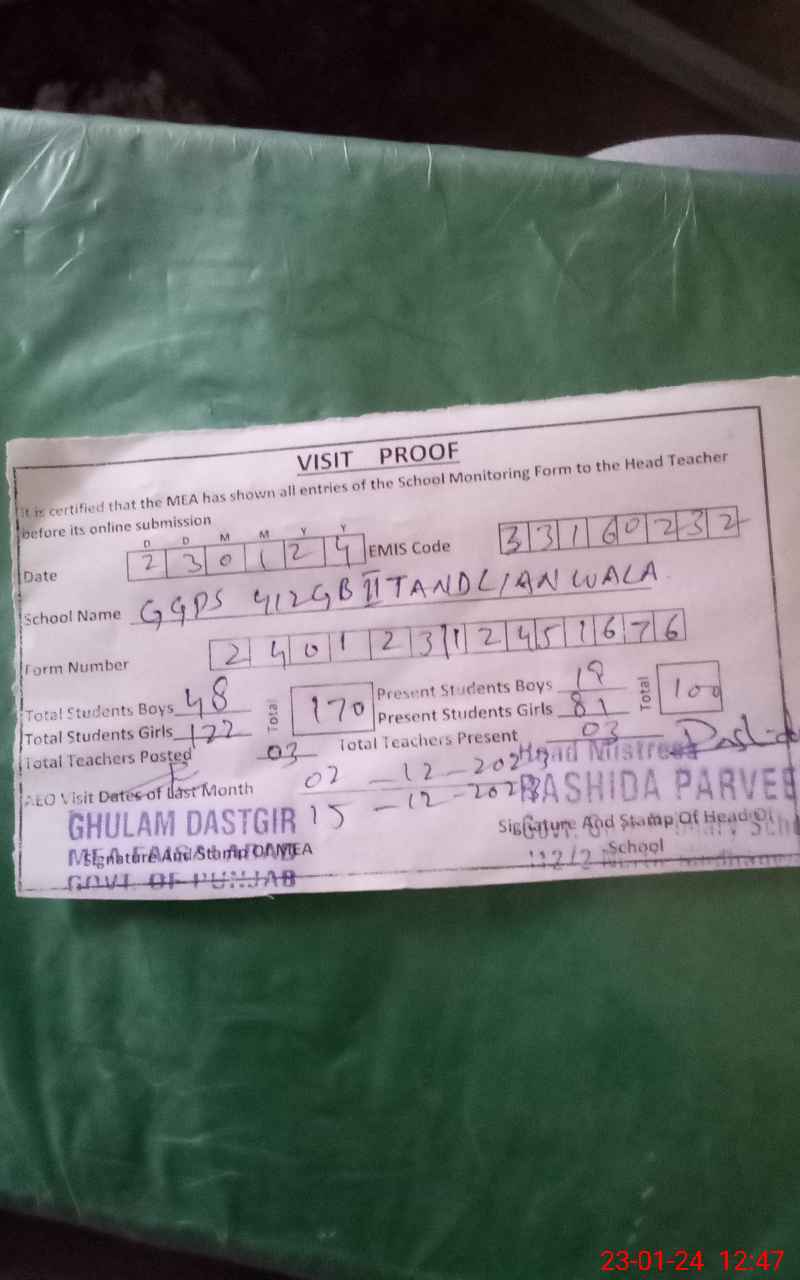 VISIT PROOF
It is certified that the MEA has shown all entries of the School Monitoring Form to the Head Teacher
before its online submission
D D M M Y Y
Date 2 3 0 1 2 4 EMIS Code 3 3 1 6 0 2 3 2
School Name GGPS 412GB II TANDLIANWALA
Form Number 2 4 0 1 2 3 1 2 4 5 1 6 7 6
Total Students Boys 48 Total 170 Present Students Boys 19 Total 100
Total Students Girls 122 Present Students Girls 81
Total Teachers Posted 03 Total Teachers Present 03
AEO Visit Dates of Last Month 02-12-2023
15-12-2023
Head Mistress
RASHIDA PARVEE
GHULAM DASTGIR
Signature And Stamp Of Head Of
School
Signature And Stamp Of MEA
MEA FAISALABAD
GOVT OF PUNJAB
23-01-24 12:47